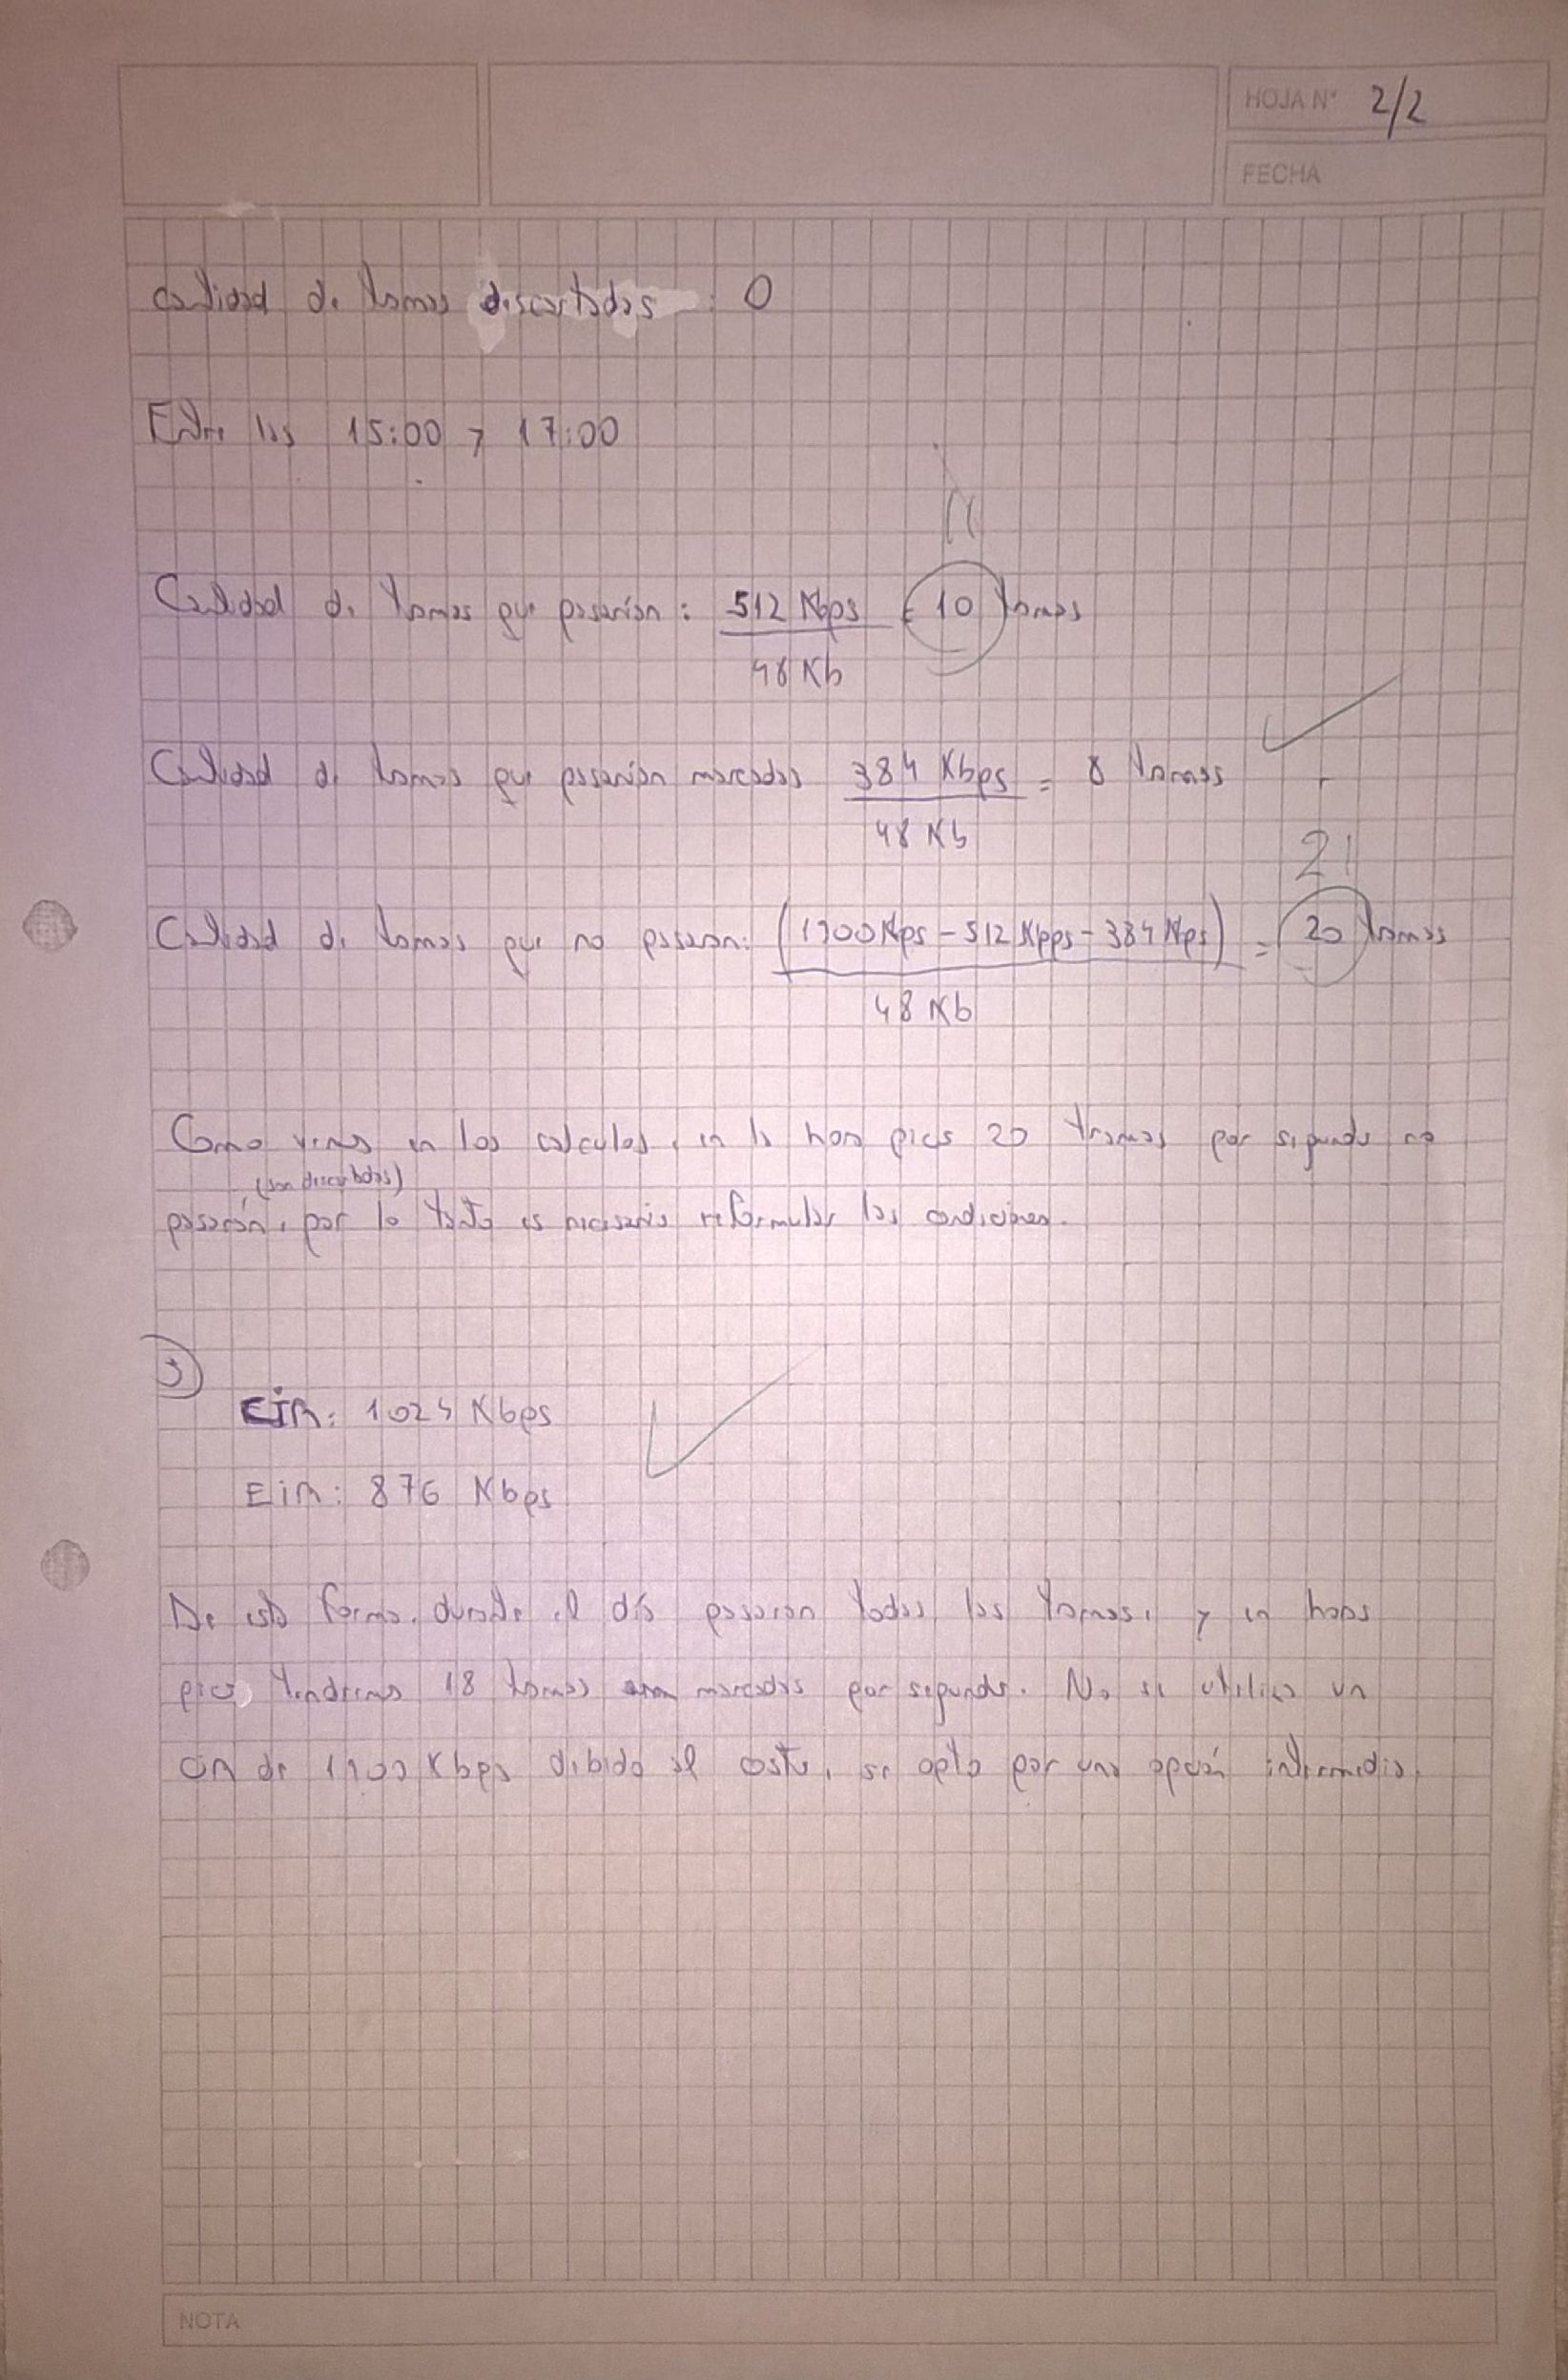 HOJA N° 2/2
FECHA
cantidad de tramas descartadas : 0
Entre las 15:00 y 17:00
11
Cantidad de tramas que pasarían : 512 Kbps = 10 tramas
48 Kb
Cantidad de tramas que pasarían marcadas 384 Kbps = 8 tramas
48 Kb
21
Cantidad de tramas que no pasaran: (1900 Kps - 512 Kpps - 384 Kps) = 20 tramas
48 Kb
Como vemos en los calculos, en la hora pico 20 tramas por segundo no
(son descartadas)
pasarán, por lo tanto es necesario reformular las condiciones.
3
CIR: 1024 Kbps
EIR: 876 Kbps
De esta forma, durante el día pasaran todas las tramas, y en hora
pico tendremos 18 tramas marcadas por segundo. No se utiliza un
CIR de 1900 Kbps debido al coste, se opto por una opción intermedia.
NOTA